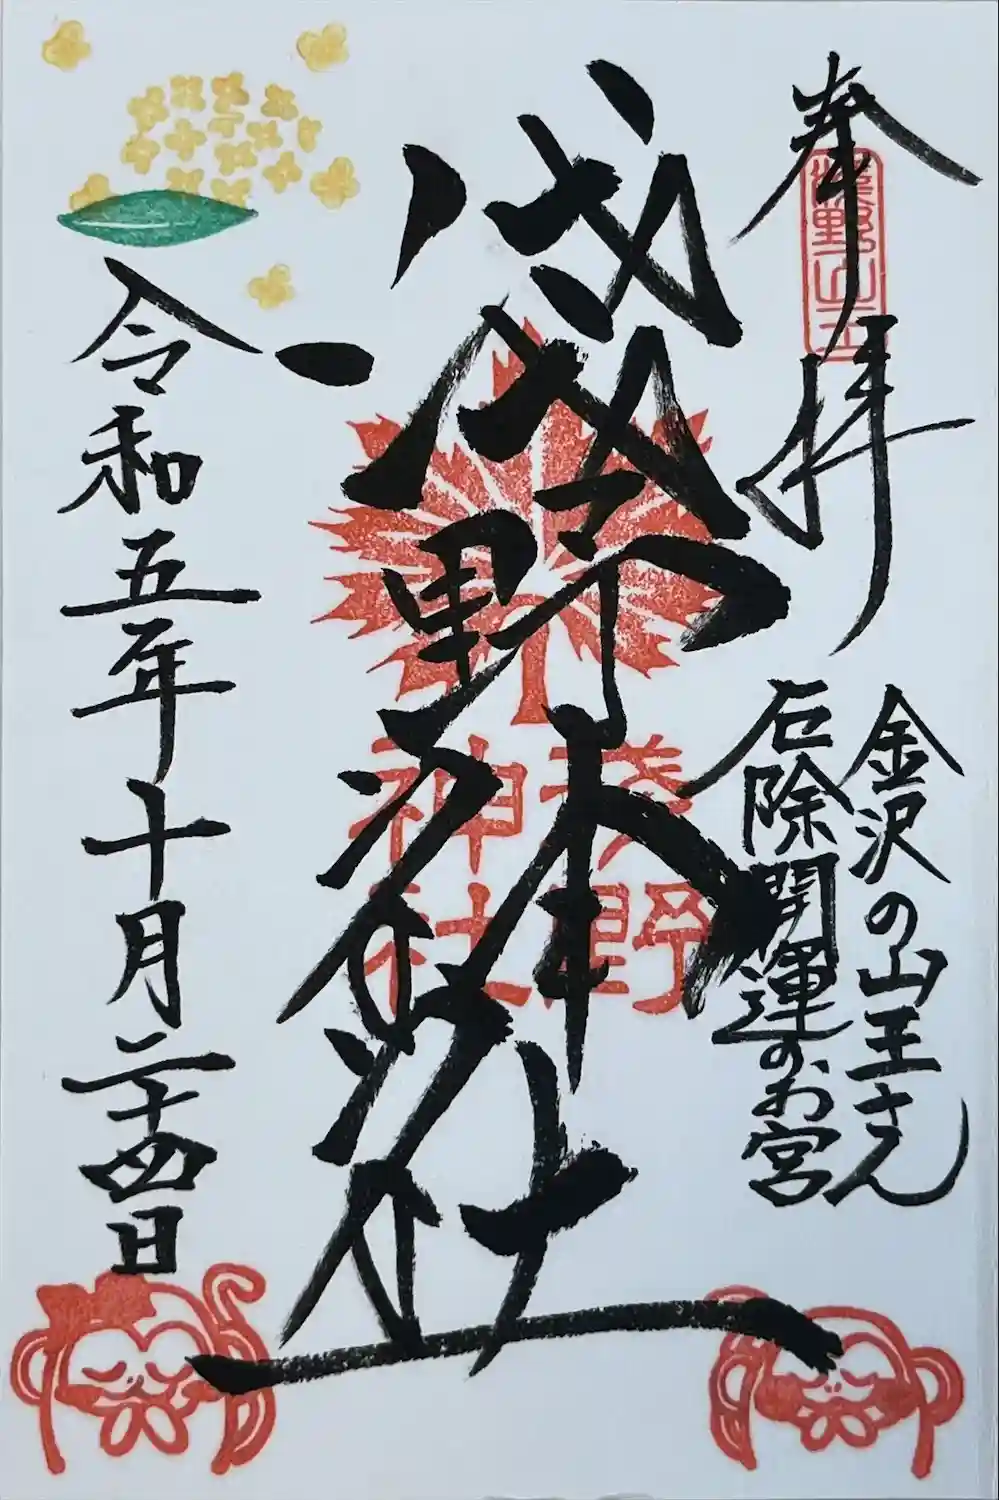 奉拝
淺野山王
金沢の山王さん
厄除開運のお宮
淺野神社
浅野
神社
令和五年十月二十四日